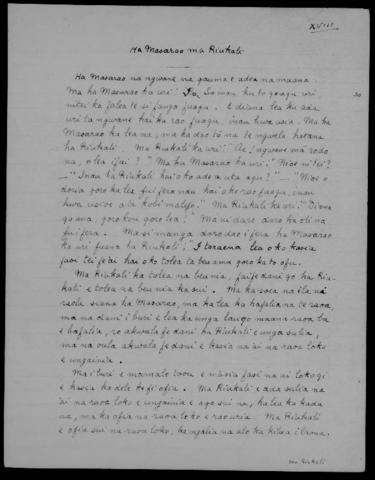 XVIII
Ha Masarao ma Riukali
Ha Masarao na ngwane na gauma t adea na maana.
Ma ha Masarao ka uri: So inau ku to goagu uri
nitei ka falea te si fanga fuagu. E diana lea ku ada
uri ta ngwane hai ka rao fuagu, inau kwasusia. Ma ha
Masarao ka lea na, ma ka dao to na te ngwela hatana
ha Riukali. Ma Riukali ka uri: "Ae! ngwaos mā rodo
na, o lea ifai?" Ma ha Masarao ka uri: "Nioi ni tei?
"Inau ha Riukali hai oko adea uta agu?" "Nioi o
dosia goro ka lea fuifera nau hai oko rao fuagu, inau
kwa usive ala kobi malefo." Ma Riukali ka uri: "Diana
go ana, goro kou goro lea!" Ma ni daro daro ka oli na
fuifera. Ma si manga daro dao i fera ha Masarao
ka uri fuana ha Riukali: "I taraena lea oko kasia
fasi tei fe ai hai oko tolea te beu ama goro ka to ofu.
Ma Riukali ka tolea na beu nia, faifedani go ha Riu-
kali e tolea na beu nia ka sui. Ma ka soea na ila na
raola siana ha Masarao, ma ka lea ka hafalia na te raoa,
ma na dani i buri e lea ka unga laugo maana raoa ba
e hafalia, ro akwala fe dani ha Riukali e unga sulia,
ma na oula akwala fe dani e kasia na ai na raoa loko
e ungainia.
Ma i buri e mamalo toou e māsia fasi na ai lokogi
e kasia ka dele ke fi ofia. Ma Riukali e ada sulia na
ai na raoa loko e ungainia e ago sui na, ka lea ka kada
na, ma ka ofia na raoa loko e raouria. Ma Riukali
e ofia sui na raoa loko, ka ngalia na alo ka kilua i luma.
ma Riukali